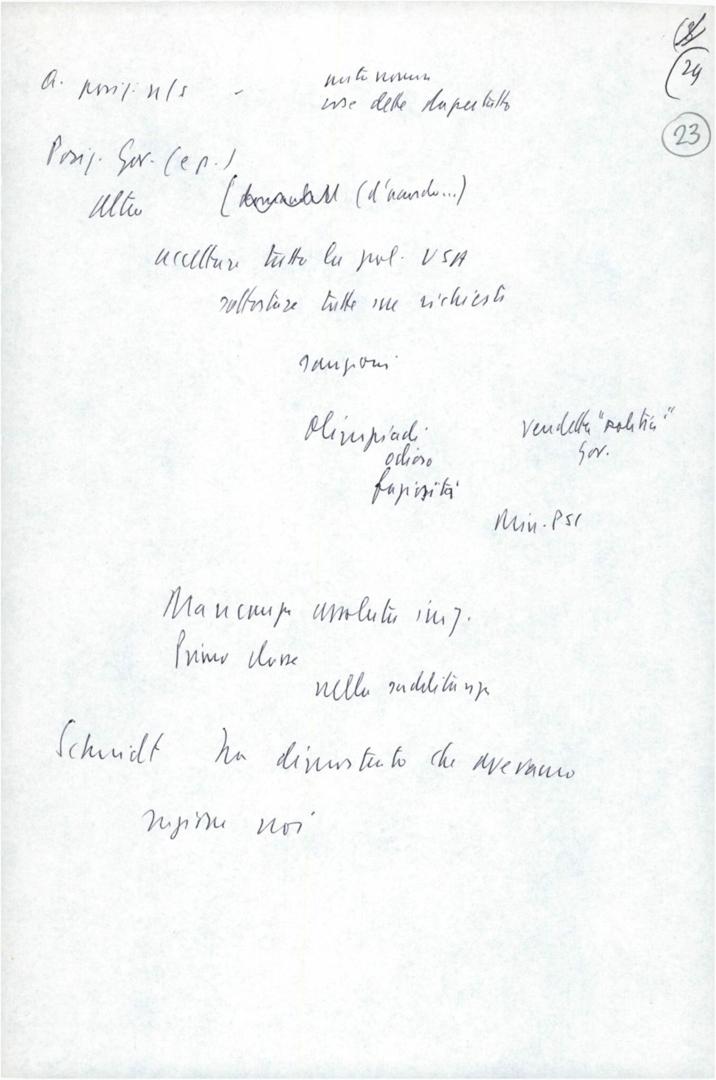 24
23
a. posiz. n/s -
cose dette dapertutto
Posiz. Gov. (e p.)
altro (d'accordo...)
accettare tutta la pol. USA
sottostare tutte sue richieste
sanzioni
Olimpiadi
odioso
faziosità
vendetta "politica"
Gov.
Min. PSI
Mancanza assoluta iniz.
Primo classe
nella sudditanza
Schmidt ha dimostrato che avevamo
ragione noi